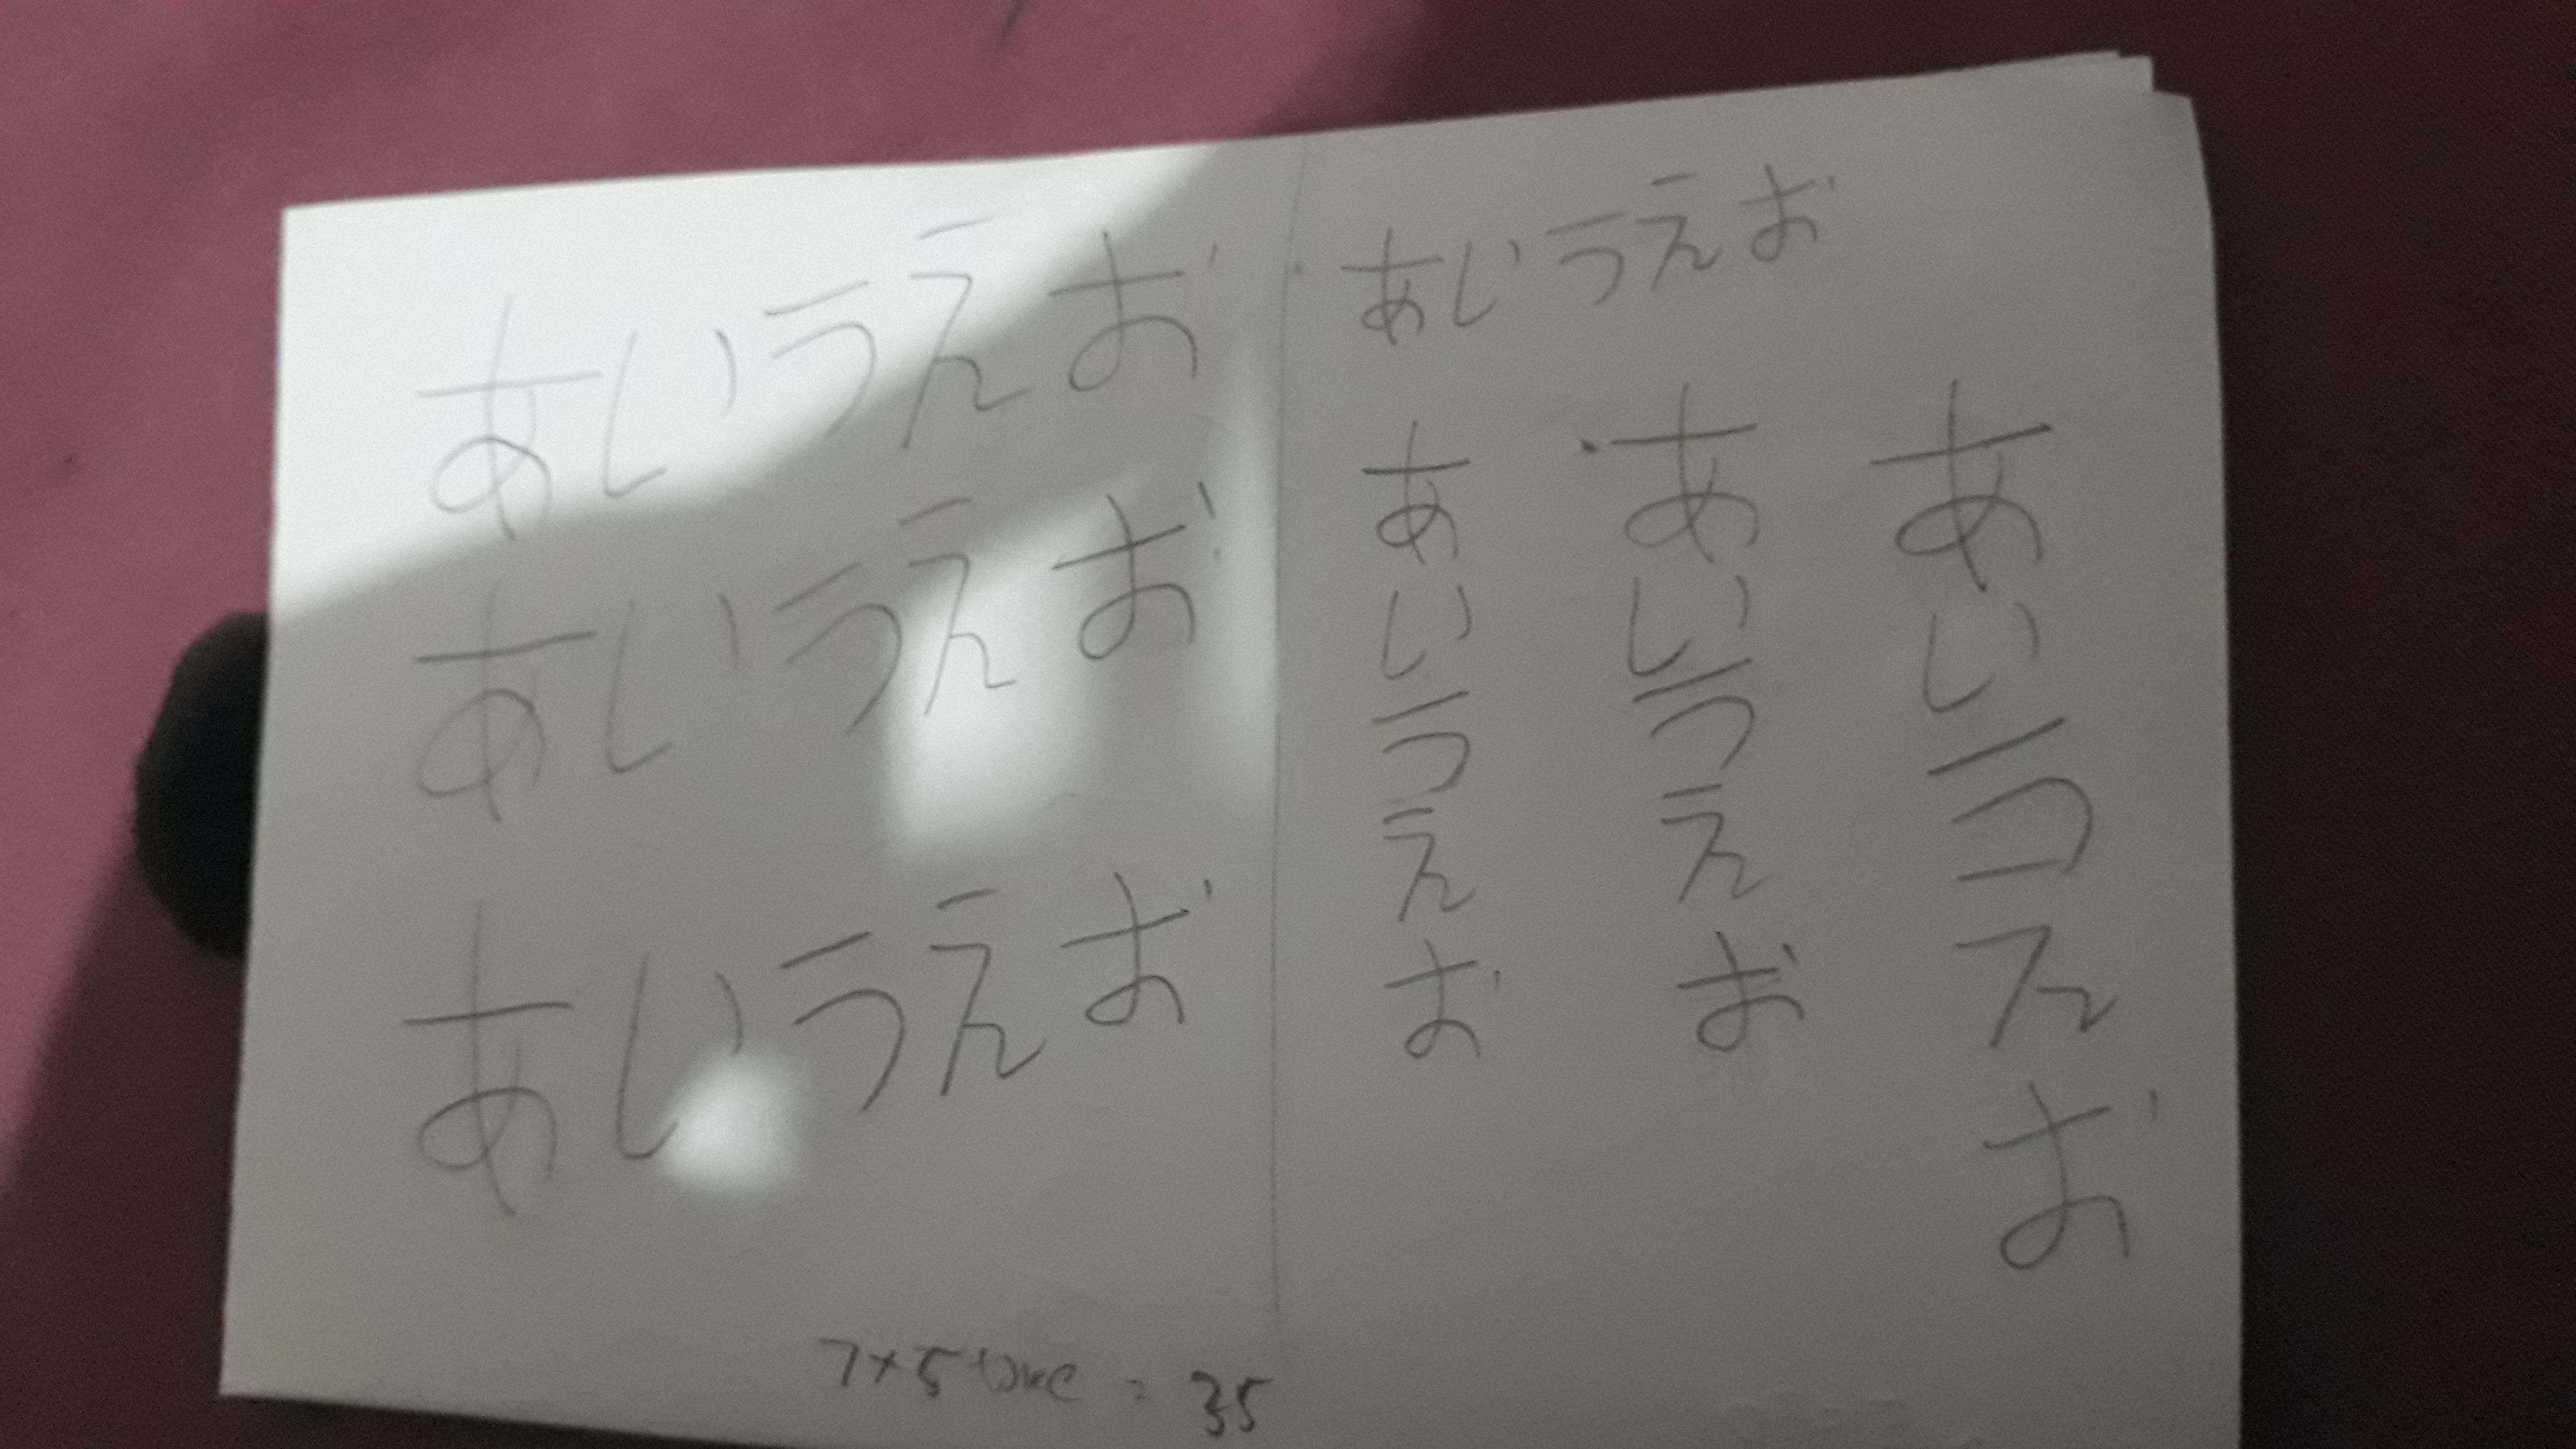 あいうえお
あいうえお
あいうえお
あいうえお
あいうえお
あいうえお
あいうえお
7×5 time = 35